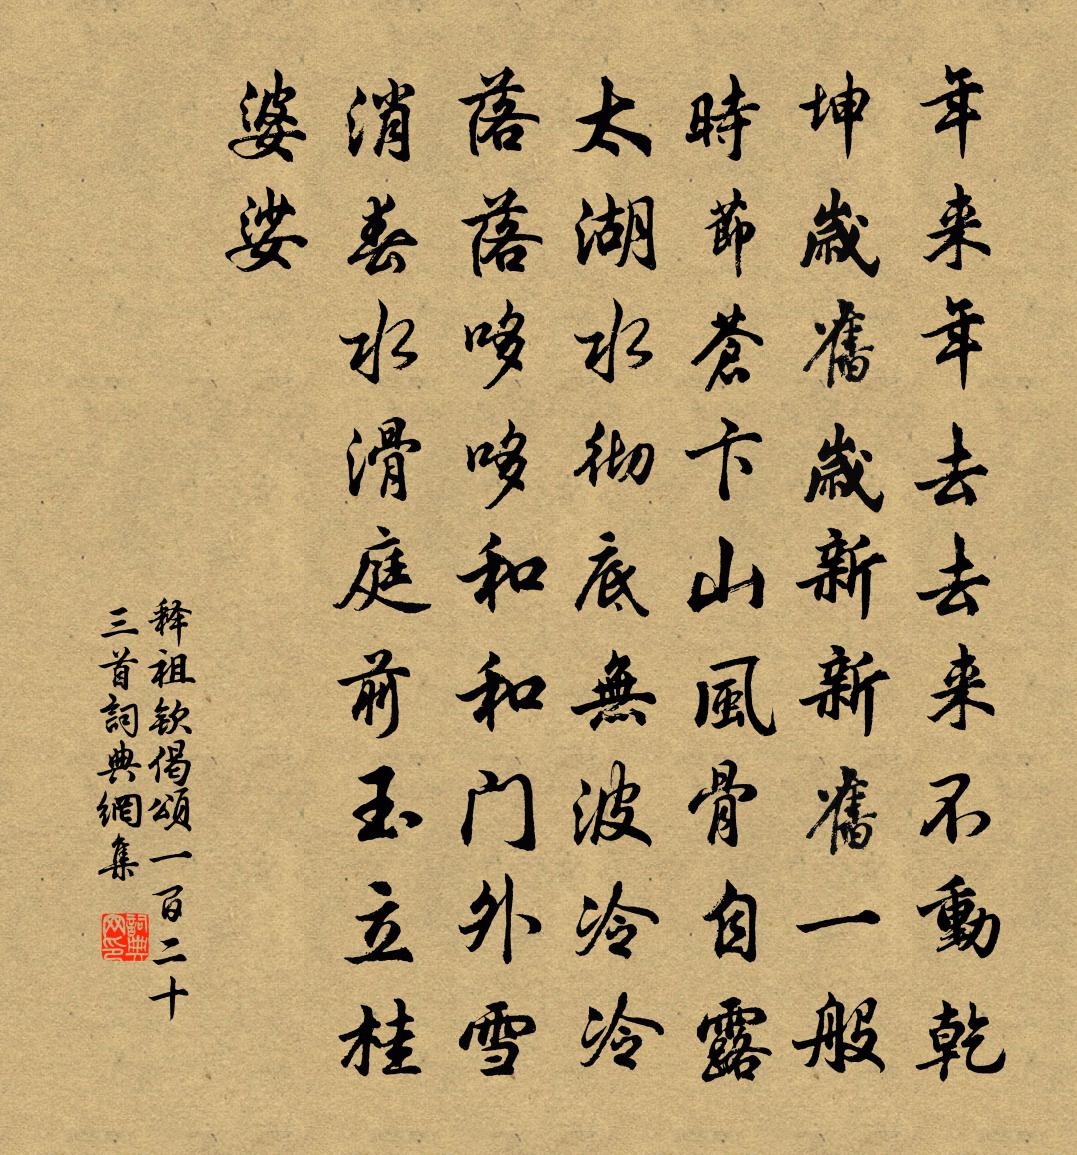 年来年去去来不動乾
坤歲舊歲新新舊一般
時節蒼卞山風骨自露
太湖水彻底無波冷冷
落落哆哆和和门外雪
消春水滑庭前玉立桂
婆娑
释祖钦偈頌一百二十
三首詞典網集
詞典
网印